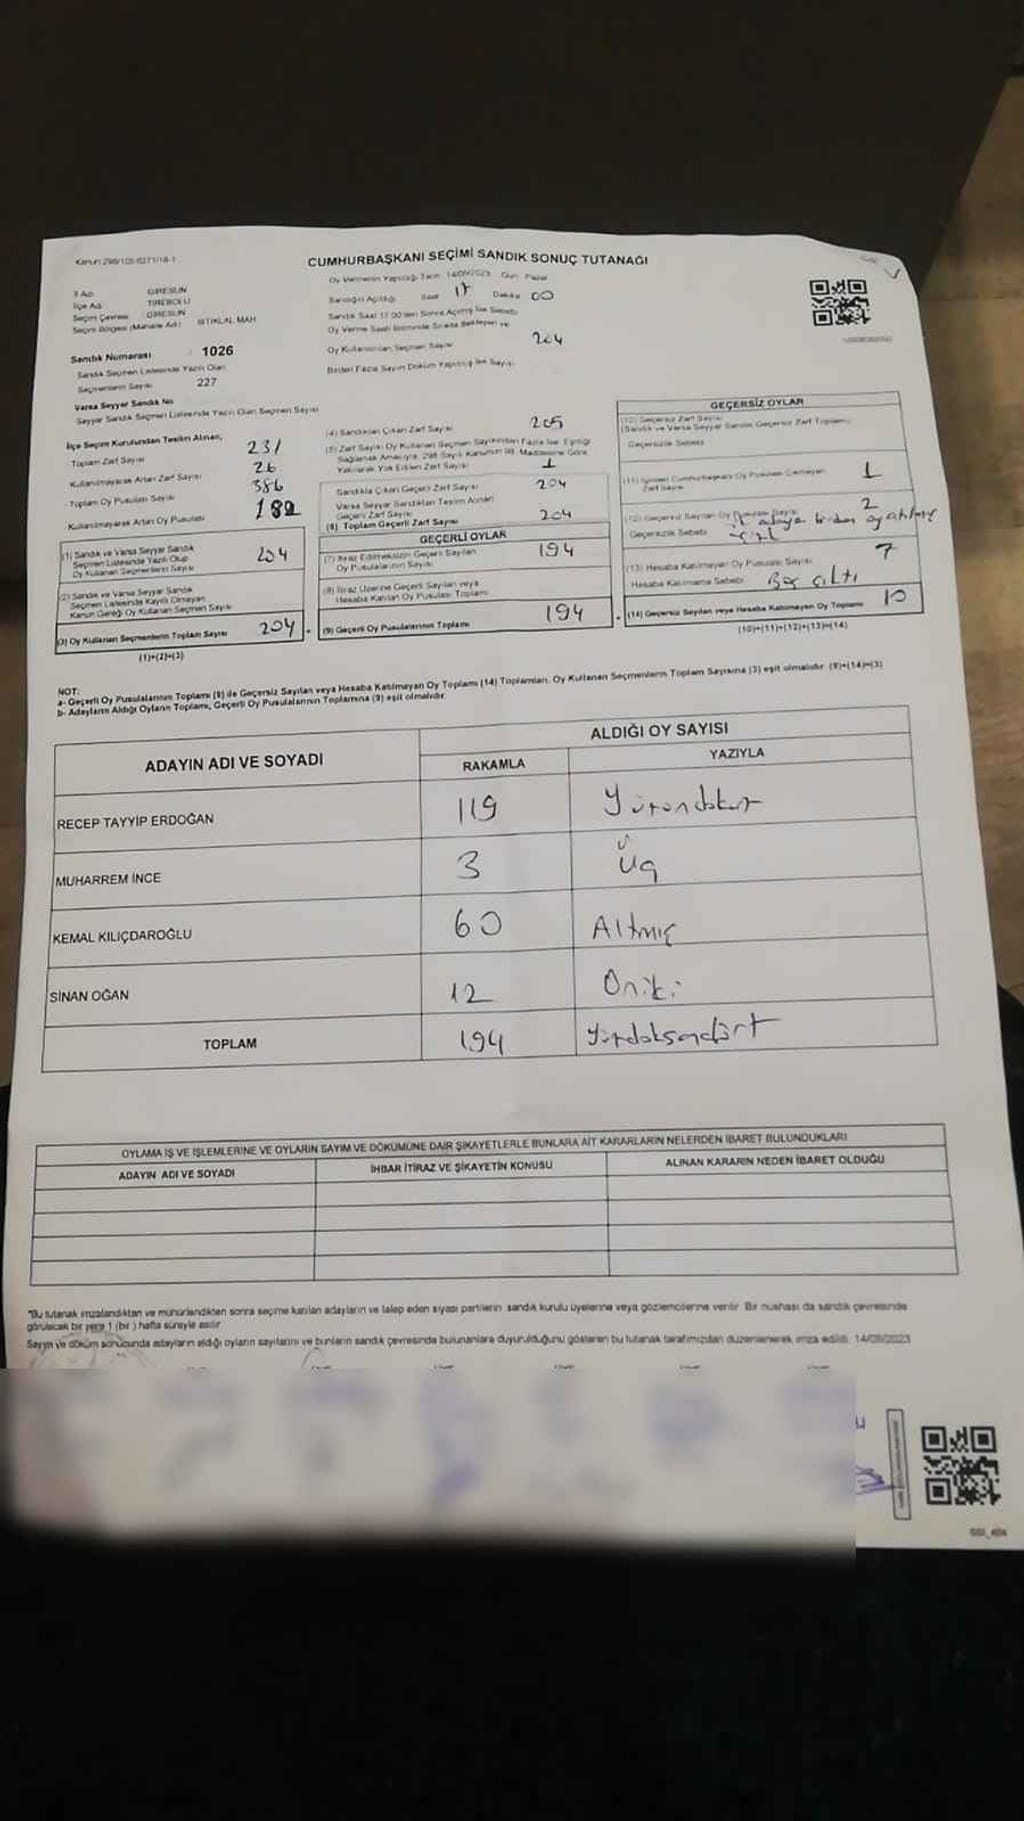 Kanun 298/105-6271/18-1
CUMHURBAŞKANI SEÇİMİ SANDIK SONUÇ TUTANAĞI
Oy Vermenin Yapıldığı Tarih 14/05/2023 Gün Pazar
İl Adı GİRESUN
İlçe Adı TİREBOLU
Seçim Çevresi GİRESUN
Seçim Bölgesi (Mahalle Adı) İSTİKLAL MAH
Sandık Numarası : 1026
Sandık Seçmen Listesinde Yazılı Olan
Seçmenlerin Sayısı 227
Varsa Seyyar Sandık No
Seyyar Sandık Seçmen Listesinde Yazılı Olan Seçmen Sayısı
Sandığın Açıldığı Saat 17 Dakika 00
Sandık Saat 17.00'den Sonra Açılmış İse Sebebi
Oy Verme Saati Bitiminde Sırada Bekleyen ve
Oy Kullananları Seçmen Sayısı 204
Birden Fazla Sayım Döküm Yapılmış İse Sayısı
İlçe Seçim Kurulundan Teslim Alınan,
Toplam Zarf Sayısı 231
Kullanılmayarak Artan Zarf Sayısı 26
Toplam Oy Pusulası Sayısı 386
Kullanılmayarak Artan Oy Pusulası 182
(1) Sandık ve Varsa Seyyar Sandık
Seçmen Listesinde Yazılı Olup
Oy Kullanan Seçmenlerin Sayısı 204
(2) Sandık ve Varsa Seyyar Sandık
Seçmen Listesinde Kayıtlı Olmayan
Kanun Gereği Oy Kullanan Seçmen Sayısı
(3) Oy Kullanan Seçmenlerin Toplam Sayısı 204
(1)+(2)=(3)
(4) Sandıktan Çıkan Zarf Sayısı 205
(5) Zarf Sayısı Oy Kullanan Seçmen Sayısından Fazla İse, Eşitliği
Sağlamak Amacıyla, 298 Sayılı Kanunun 98. Maddesine Göre
Yakılarak Yok Edilen Zarf Sayısı 1
Sandıkta Çıkan Geçerli Zarf Sayısı 204
Varsa Seyyar Sandıktan Teslim Alınan
Geçerli Zarf Sayısı
(6) Toplam Geçerli Zarf Sayısı 204
GEÇERLİ OYLAR
(7) İtiraz Edilmeksizin Geçerli Sayılan
Oy Pusulalarının Sayısı 194
(8) İtiraz Üzerine Geçerli Sayılan veya
Hesaba Katılan Oy Pusulası Toplamı
(9) Geçerli Oy Pusulalarının Toplamı 194
GEÇERSİZ OYLAR
(10) Geçersiz Zarf Sayısı
(Sandık ve Varsa Seyyar Sandık Geçersiz Zarf Toplamı)
Geçersizlik Sebebi
(11) İçinden Cumhurbaşkanı Oy Pusulası Çıkmayan
Zarf Sayısı 1
(12) Geçersiz Sayılan Oy Pusulası Sayısı 2
Geçersizlik Sebebi
(13) Hesaba Katılmayan Oy Pusulası Sayısı 7
Hesaba Katılmama Sebebi Boş çıktı
(14) Geçersiz Sayılan veya Hesaba Katılmayan Oy Toplamı 10
(10)+(11)+(12)+(13)=(14)
NOT:
a- Geçerli Oy Pusulalarının Toplamı (9) ile Geçersiz Sayılan veya Hesaba Katılmayan Oy Toplamı (14) Toplamları, Oy Kullanan Seçmenlerin Toplam Sayısına (3) eşit olmalıdır. (9)+(14)=(3)
b- Adayların Aldığı Oyların Toplamı, Geçerli Oy Pusulalarının Toplamına (9) eşit olmalıdır.
ADAYIN ADI VE SOYADI
ALDIĞI OY SAYISI
RAKAMLA YAZIYLA
RECEP TAYYİP ERDOĞAN 119 Yüzondokuz
MUHARREM İNCE 3 Üç
KEMAL KILIÇDAROĞLU 60 Altmış
SİNAN OĞAN 12 Oniki
TOPLAM 194 Yüzdoksandört
OYLAMA İŞ VE İŞLEMLERİNE VE OYLARIN SAYIM VE DÖKÜMÜNE DAİR ŞİKAYETLERLE BUNLARA AİT KARARLARIN NELERDEN İBARET BULUNDUKLARI
ADAYIN ADI VE SOYADI İHBAR İTİRAZ VE ŞİKAYETİN KONUSU ALINAN KARARIN NEDEN İBARET OLDUĞU
"Bu tutanak imzalandıktan ve mühürlendikten sonra seçime katılan adayların ve talep eden siyasi partilerin sandık kurulu üyelerine veya gözlemcilerine verilir. Bir nüshası da sandık çevresinde
görülecek bir yere 1 (bir) hafta süreyle asılır.
Sayım ve döküm sonucunda adayların aldığı oyların sayılarını ve bunların sandık çevresinde bulunanlara duyurulduğunu gösteren bu tutanak tarafımızdan düzenlenerek imza edildi. 14/05/2023